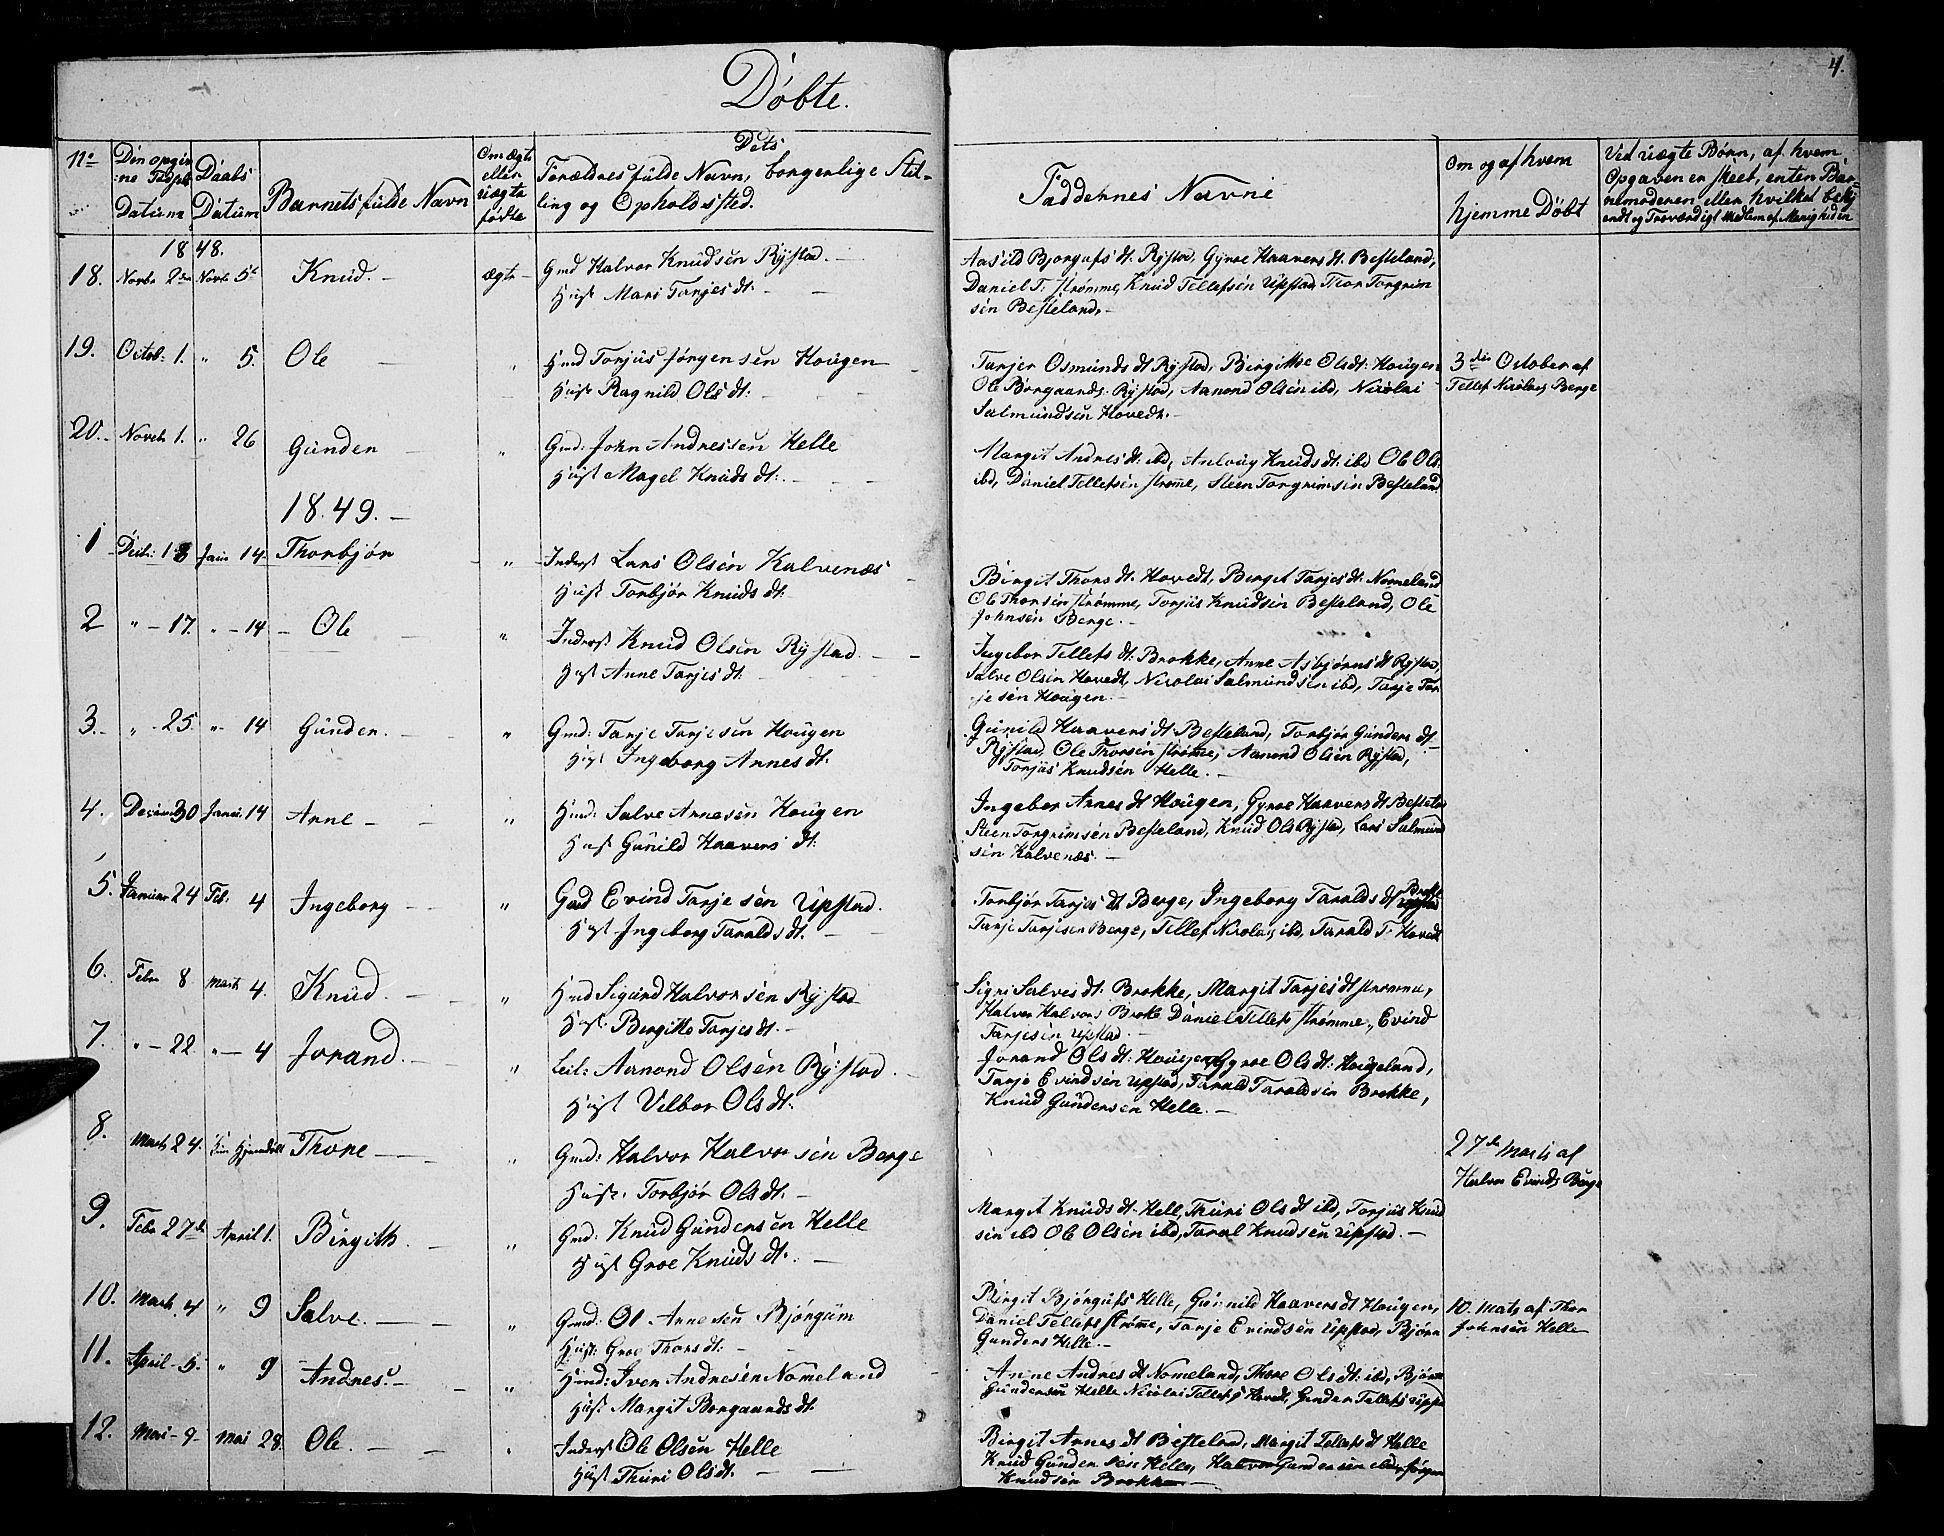 4.
Døbte.
No
Den opgivne Fødsels Datum
Daabs Datum
Barnets fulde Navn
Om ægte eller uægte fødte
Dets
Forældres fulde Navn, borgerlige Stilling og Opholdssted.
Faddernes Navne
Om og af hvem hjemme Døbt
Ved uægte Børn, af hvem Opgaven er skeet, enten Barnemoderen eller hvilket bekjendt og Troværdigt Medlem af Menigheden
1848.
18. Novbr 2den Novb 5te Knud. – ægte – Gmd Halvor Knudsen Rystad. –
Hust Mari Tarjesdt. –
Aasild Bjorgufs dt. Rystad, Gyroe Haavers dt. Besteland,
Daniel T. Strømme, Knud Tellefsen Upstad, Thor Torgrim
sen Besteland, –
19. Octob: 1. " 5. Ole – " Hmd Torjus Jørgensen Hougen
Hust Ragnild Ols dt. –
Tarjer Osmunds dt Rystad, Birgitte Olsdt. Hougen
Ole Borgaards. Rystad, Aanond Olsen ibd, Nicolai
Salmundsen Hovedt. –
3die October af
Tellef Nicolais Berge
20. – Novb 1. " 26 Gunder – " Gmd: John Andressen Helle
Hust Magel Knuds dt. –
Margit Andres dt. ibd, Anloug Knuds dt. ibd Ole Ols.
ibd, Daniel Tellefsen Strømme, Steen Torgrimsen Besteland
1849. –
1 Decb: 18 Janu 14 Thorbjør – " Inderst Lars Olsen Kalvenæs
Hust Torbjør Knuds dt. –
Birgit Thors dt. Hovedt, Bergit Tarjes dt. Nomeland
Ole Thorsen Strømme, Torjus Knudsen Besteland, Ole
Johnsen Berge. –
2 " – 17. " – 14 – Ole – " Inderst Knud Olsen Rystad. –
Hust Anne Tarjes dt. –
Ingebor Tellefs dt. Brokke, Anne Asbjørns dt Rystad,
Salve Olsen Hovedt, Nicolai Salmundsen ibd, Tarje Tar
jesen Hougen. –
3. – " – 25. " – 14 Gunder. – " Gmd: Tarje Tarjesen Hougen
Hust Ingeborg Arnes dt.
Gunild Haavers dt Besteland, Torbjør Gunders dt –
Rystad, Ole Thorsen Strømme, Aanond Olsen Rystad,
Torjus Knudsen Helle. –
4. Decemb 30 Janu. 14 Arne – " Hmd: Salve Arnesen Hougen
Hust Gunild Haavers dt.
Ingebor Arnes dt Hougen, Gyroe Haavers dt Besteland
Steen Torgrimsen Besteland, Knud Ols Rystad, Lars Salmund
sen Kalvenæs. –
5. Januar 24 Feb. 4 Ingeborg – " Gmd Evind Tarjesen Upstad.
Hust Ingeborg Taralds dt. –
Torbjør Tarjes dt Berge, Ingeborg Taralds dt Brokke
Tarje Tarjesen Berge, Tellef Nicolais ibd, Tarald T. Hovedt
6. Febr 8 Marts 4. Knud. – " Hmd Sigurd Halvorsen Rystad
Hust. Bergitte Tarjes dt. –
Signi Salves dt. Brokke, Margit Tarjes dt Strømme,
Halvor Halvors Broke Daniel Tellefs Strømme, Evind
Tarjesen Upstad. –
7. " – 22. " – 4 Jorand. – " Leil: Aanond Olsen Rystad. –
Hust Vilbor Ols dt.
Jorand Ols dt: Hougen, Gyroe Ols dt: Hougeland,
Tarje Evindsen Upstad, Tarald Taraldsen Brokke,
Knud Gundersen Helle. –
8. Marts 24. Hjemdøbt Thore – " Gmd: Halvor Halvorsen Berge
Hust. Torbjør Ols dt. –
27de Marts af
Halvor Evinds Berge
9. Febr 27de April 1. Birgith. – " Gmd: Knud Gundersen Helle
Hust Groe Knuds dt. –
Margit Knuds dt. Helle, Thuri Ols dt ibd, Torjus Knud
sen ibd Ole Olsen ibd, Taral Knudsen Upstad. –
10. Marts 4 " 9 Salve. – " Gmd: Ol Arnesen Bjørgum
Hust: Groe Thors dt: –
Birgit Bjørgufs Helle, Gunnild Haavers dt Hougen,
Daniel Tellefs Strømme, Tarje Evindsen Upstad, Bjørn
Gunders Helle. –
10. Mats af Thor
Johnsen Helle
11. April – 5. " 9 Andres. – " Hmd: Iver Andresen Nomeland
Hust. Margit Borgaards dt.
Anne Andres dt Nomeland, Thore Ols dt: ibd, Bjørn
Gundersen Helle Nicolai Tellefs Hovedt, Gunder Tellefs Uppst
12. Mai – 9 – Mai 28. Ole. – " Inderst Ole Olsen Helle
Hust Thuri Ols dt. –
Birgit Arnes dt Besteland, Margit Tellefs dt Helle
Knud Gundersen Helle, Halvor Gundersen ibd, Jørgen
Knudsen Brokke –